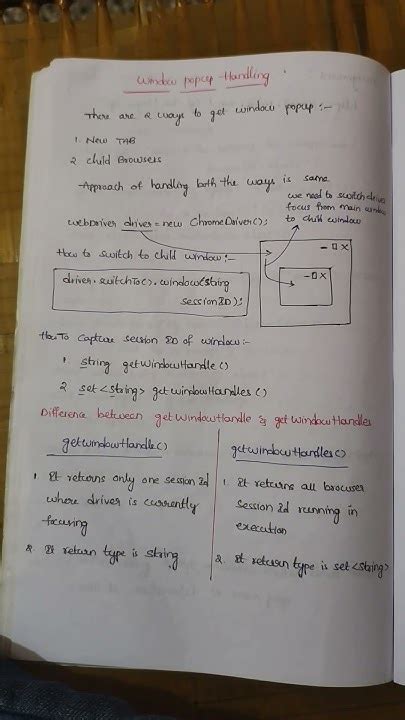 Window popup Handling
There are 2 ways to get window popup :-
1. New TAB
2. child Browsers
Approach of handling both the ways is same
we need to switch driver
focus from main window
to child window
WebDriver driver = new ChromeDriver();
How to switch to child window :-
driver.switchTo().window(string
sessionID);
How To capture session ID of window :-
1. string getWindowHandle()
2. set<string> getWindowHandles()
Difference between getWindowHandle & getWindowHandles
getWindowHandle()
1. It returns only one session Id
where driver is currently
focusing
2. It return type is string
getWindowHandles()
1. It returns all browser
session Id running in
execution
2. It return type is set<string>